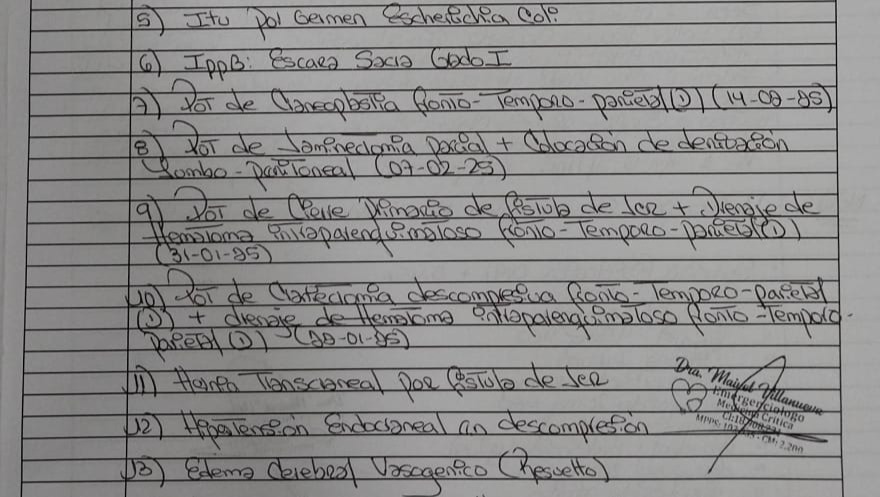 5) Itu por Germen Escherichia Coli
6) IppB: Escara Sacra Grado I
7) Pot de Craneoplastia fronto-Temporo-parietal (D) (14-02-25)
8) Pot de Laminectomia parcial + Colocación de derivación
Lombo-peritoneal (07-02-25)
9) Pot de Cierre primario de fistula de LCR + Drenaje de
Hematoma intraparenquimatoso fronto-Temporo-parietal (D)
(31-01-25)
10) Pot de Cranectomia descompresiva fronto-Temporo-parietal
(D) + drenaje de Hematoma intraparenquimatoso fronto-Temporo-
parietal (D) (28-01-25)
11) Hernia Transcraneal por fistula de LCR
12) Hipertensión Endocraneal en descompresión
13) Edema cerebral Vasogenico (Resuelto)
Dra. Villanueva
Emergenciologo
Medicina Critica
CM: 2.200